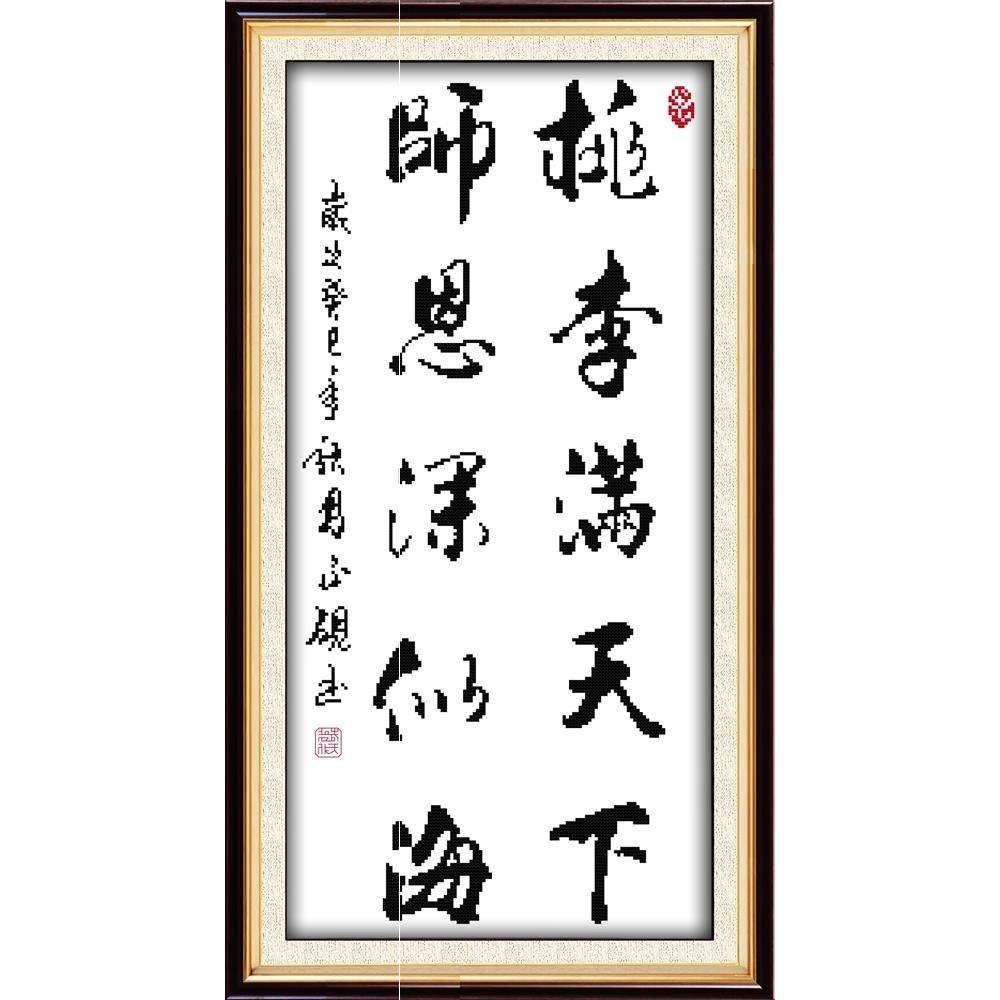 桃李满天下
師恩深似海
歲次癸巳年秋月